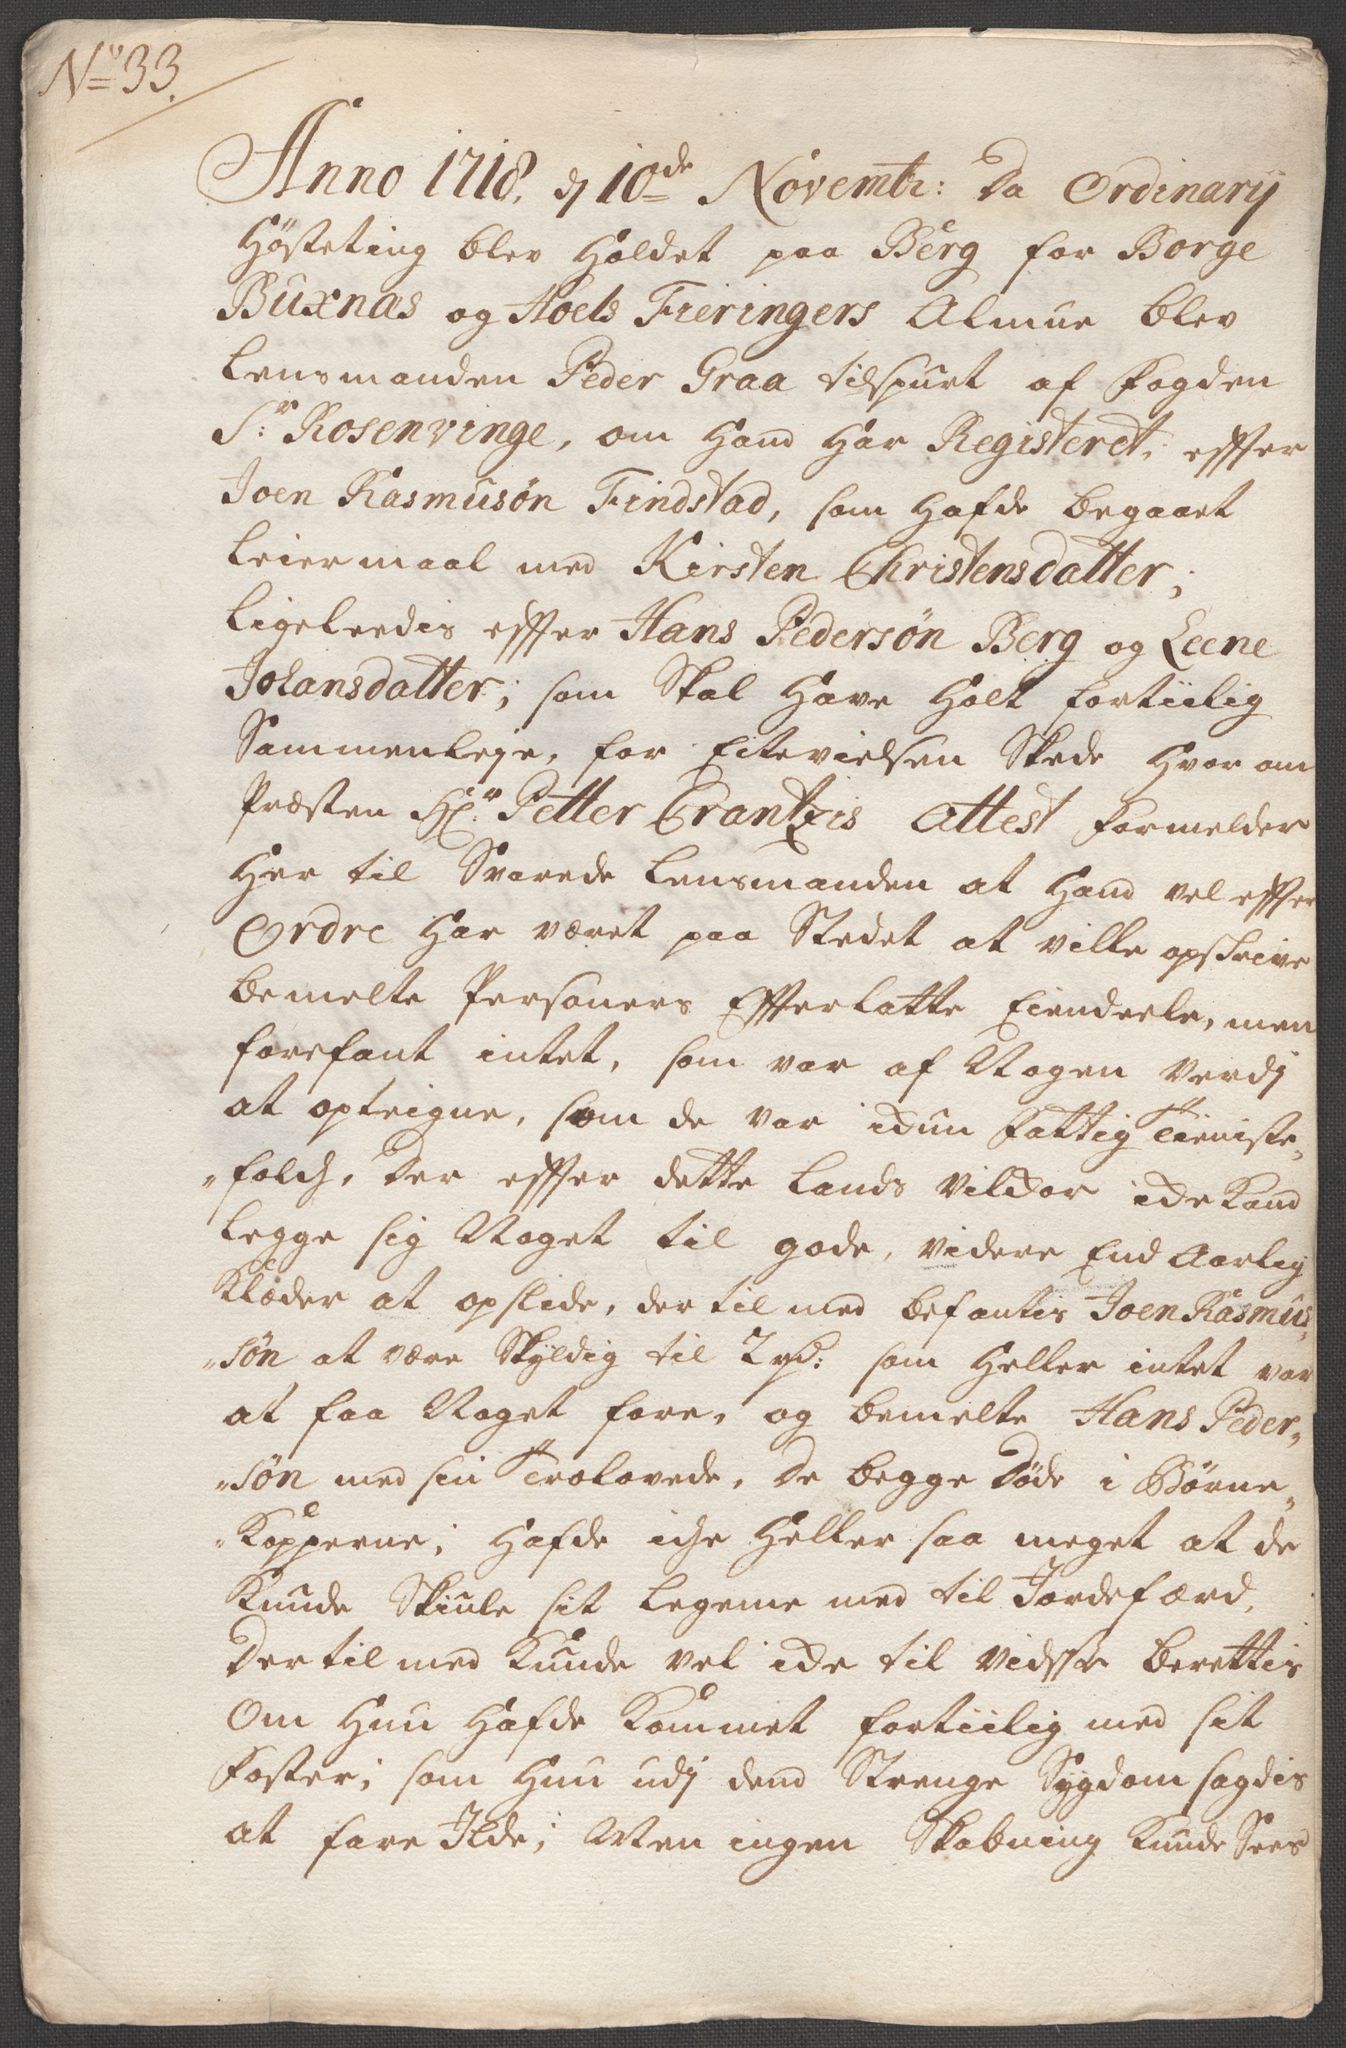 No 33.
Anno 1718. d 10de Novembr: Da Ordinarij
Høsteting blev Holdet paa Berg for Borge
Buxnas og Hoels Fieringers Almue blev
Lensmanden Peder Graa tilspurt af Fogden
Sr: Rosenvinge, om Hand Har Registeret, effter
Joen Rasmusøn Findstad, som Hafde begaaet
Leiermaal med Kirsten Christensdatter;
Ligeleedis effter Hans Pedersøn Berg og Leene
Johansdatter; som Skal Have Holt fortiilig
Sammenleje, for Ectevielsen Skede Hvorom
Præsten Hr. Petter Crantzis Attest formelder
Her til Svarede Lensmanden at Hand vel effter
Ordre Har været paa Stedet at ville opskrive
bemelte Personers Effterlatte Eiendeele, men
forefant intet, som var af Nogen Verdj
at opteigne, som de var ickun Fattig Tieniste-
-folch, Der effter dette Lands Vilckor icke Kand
Legge sig Noget til gode, videre End Aarlig
Klæder at opslide, der til med befantis Joen Rasmus-
-søn at være Skyldig til 2 rd: som Heller intet var
at faa Noget fore, og bemelte Hans Peder-
-søn med sin Trolovede, De begge Døde i Børne-
-Kopperne; Hafde iche Heller saa meget at de
Kunde Skiule sit Legeme med til Jordefærd,
Der til med Kunde vel icke til Vidsse berettis
Om Hun Hafde Kommet fortiilig med sit
Foster; som Hun udj dend Strenge Sygdom sagdis
at fare Ilde; Men ingen Skabning Kunde Sees